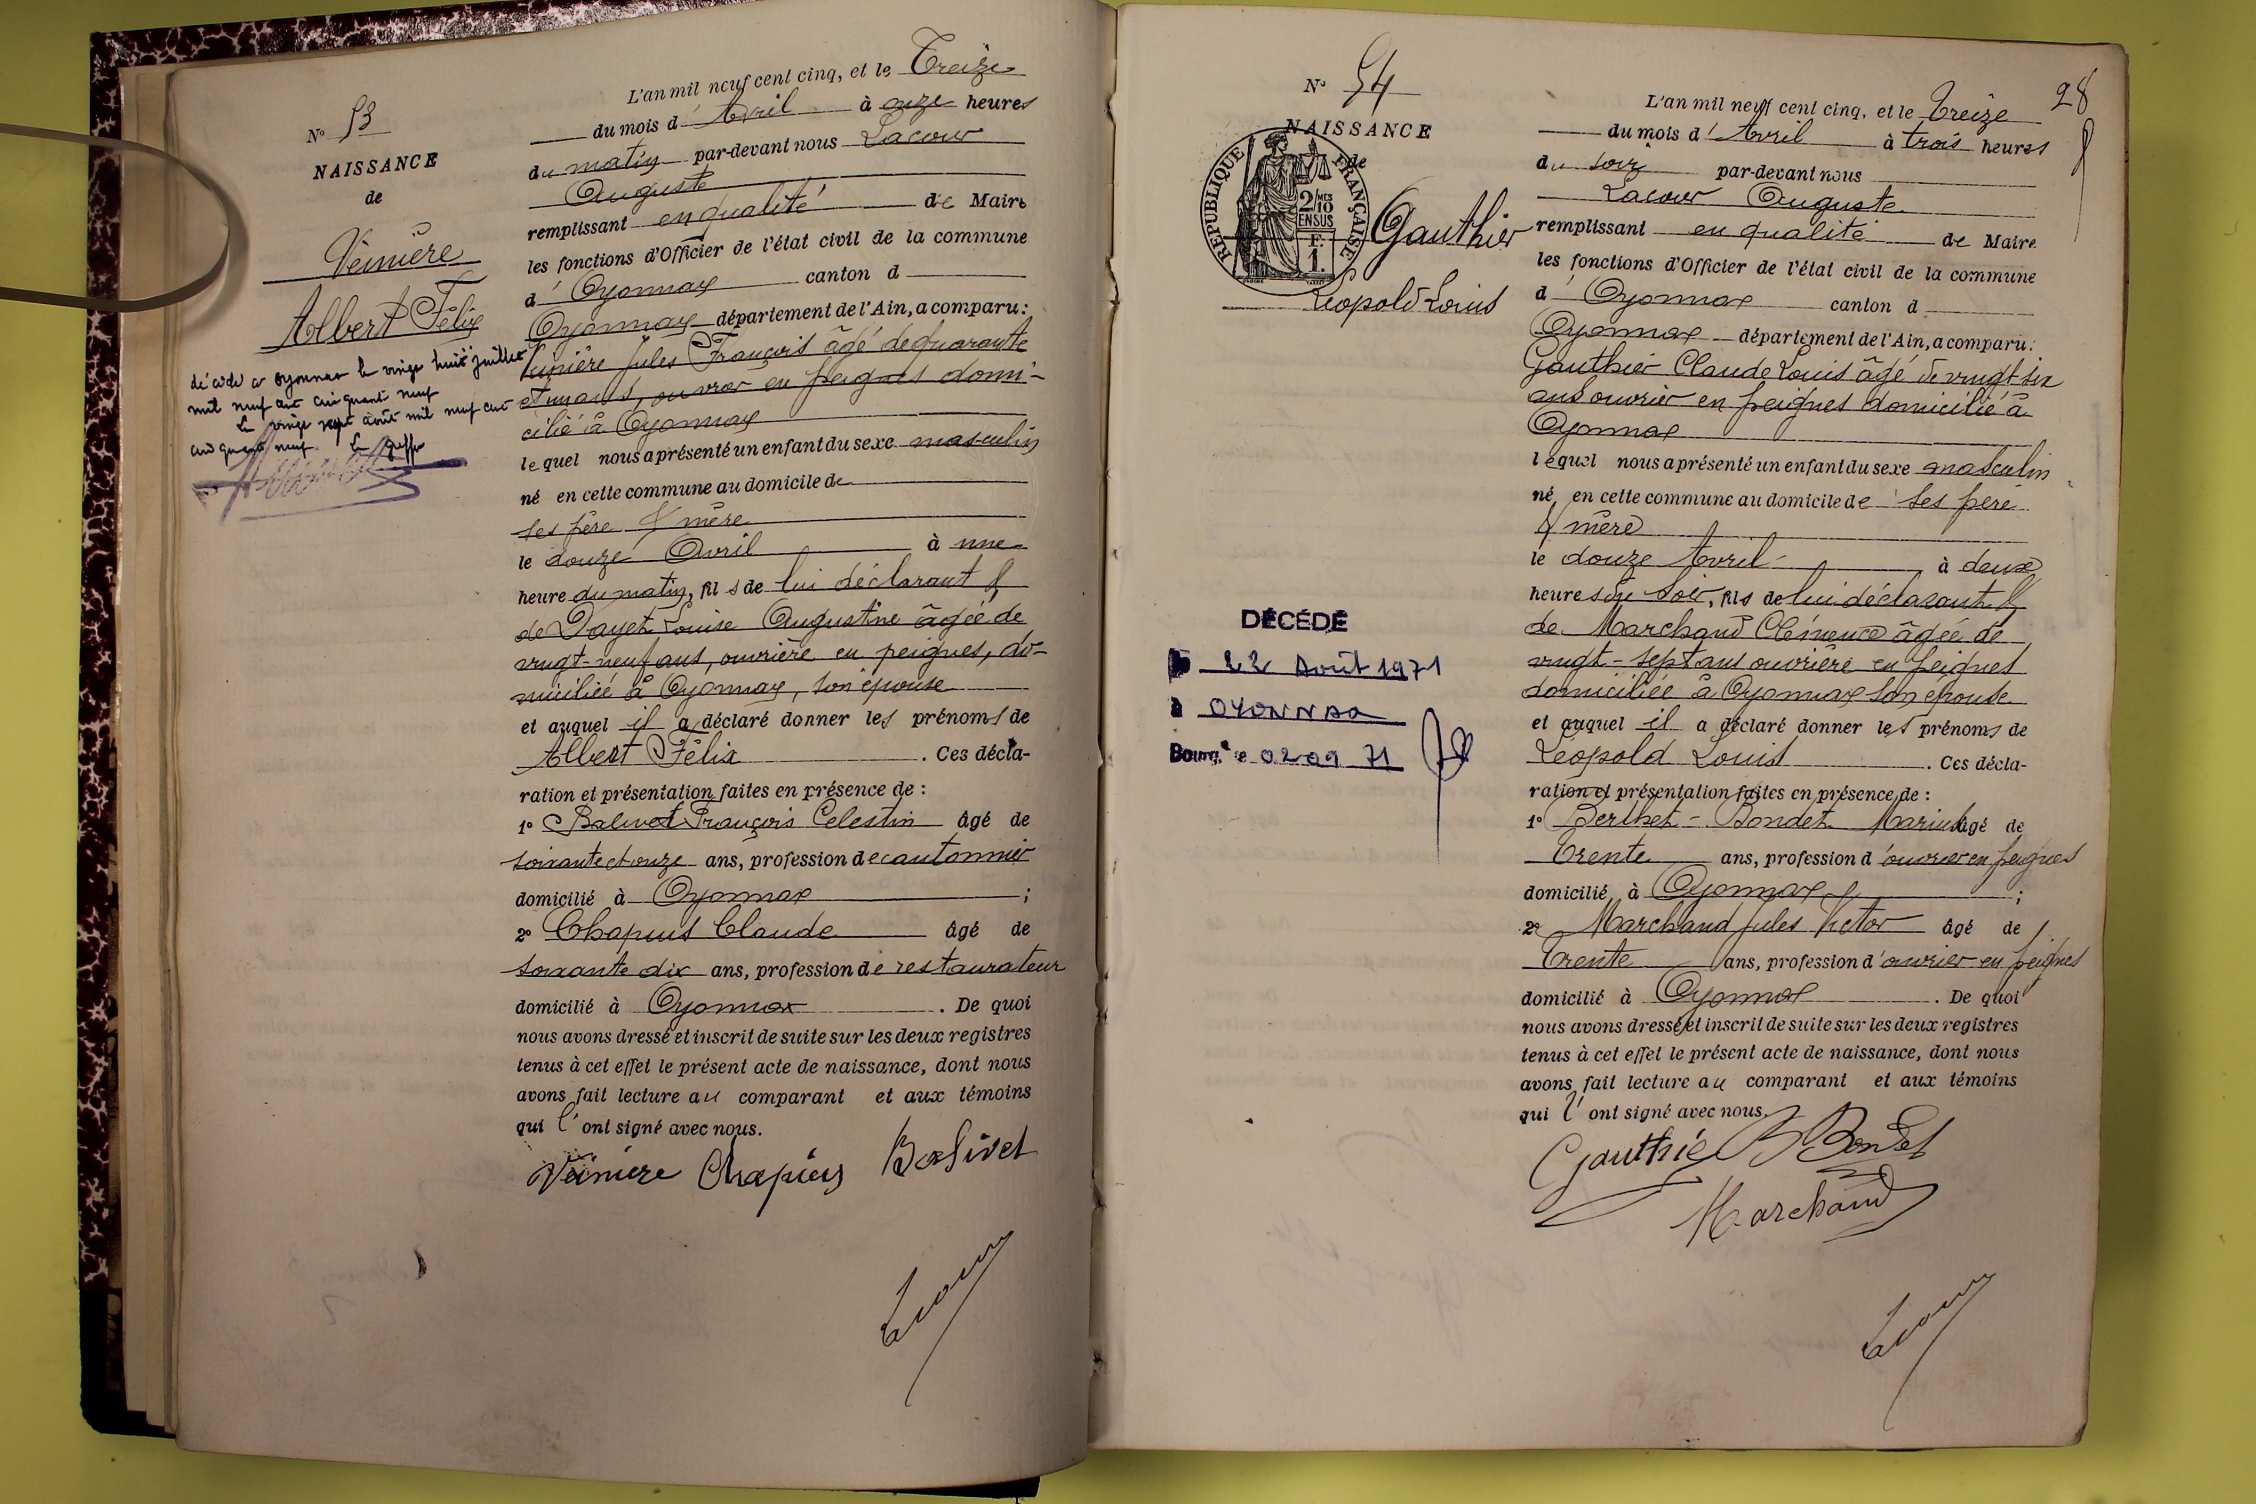 N° 53
NAISSANCE
de
Veinière
Albert Félix
décédé à Oyonnax le vingt huit juillet
mil neuf cent cinquante neuf
Le vingt sept août mil neuf cent
cinquante neuf. Le
L'an mil neuf cent cinq, et le Treize
du mois d'Avril à onze heures
du matin par-devant nous Lacour
Auguste
remplissant en qualité de Maire
les fonctions d'Officier de l'état civil de la commune
d'Oyonnax canton d
Oyonnax département de l'Ain, a comparu:
Veinière Jules François âgé de quarante
et un ans, ouvrier en peignes domi-
cilié à Oyonnax
lequel nous a présenté un enfant du sexe masculin
né en cette commune au domicile de
ses père & mère
le douze Avril à une
heure du matin, fils de lui déclarant &
de Dayet Louise Augustine âgée de
vingt-neuf ans, ouvrière en peignes, do-
miciliée à Oyonnax, son épouse
et auquel il a déclaré donner les prénoms de
Albert Félix. Ces décla-
ration et présentation faites en présence de :
1° Balivet François Celestin âgé de
soixante et onze ans, profession de cantonnier
domicilié à Oyonnax ;
2° Chapuis Claude âgé de
soixante dix ans, profession de restaurateur
domicilié à Oyonnax. De quoi
nous avons dressé et inscrit de suite sur les deux registres
tenus à cet effet le présent acte de naissance, dont nous
avons fait lecture au comparant et aux témoins
qui l'ont signé avec nous.
Veinière Chapuis Balivet
Lacour
28
N° 54
NAISSANCE
de
RÉPUBLIQUE FRANÇAISE
2/10MES
EN SUS
F.
1.
Gauthier
Léopold Louis
DÉCÉDÉ
22 Août 1971
à OYONNAX
Bourg, le 02 09 71
L'an mil neuf cent cinq, et le Treize
du mois d'Avril à trois heures
du soir par-devant nous
Lacour Auguste
remplissant en qualité de Maire
les fonctions d'Officier de l'état civil de la commune
d'Oyonnax canton d
Oyonnax département de l'Ain, a comparu:
Gauthier Claude Louis âgé de vingt six
ans ouvrier en peignes domicilié à
Oyonnax
lequel nous a présenté un enfant du sexe masculin
né en cette commune au domicile de ses père
& mère
le douze Avril à deux
heures du soir, fils de lui déclarant &
de Marchand Clémence âgée de
vingt-sept ans ouvrière en peignes
domiciliée à Oyonnax son épouse
et auquel il a déclaré donner les prénoms de
Léopold Louis. Ces décla-
ration et présentation faites en présence de :
1° Berthet-Bondet Marius âgé de
Trente ans, profession d'ouvrier en peignes
domicilié à Oyonnax ;
2° Marchand Jules Victor âgé de
Trente ans, profession d'ouvrier en peignes
domicilié à Oyonnax. De quoi
nous avons dressé et inscrit de suite sur les deux registres
tenus à cet effet le présent acte de naissance, dont nous
avons fait lecture au comparant et aux témoins
qui l'ont signé avec nous.
Gauthier B Bondet
Marchand
Lacour